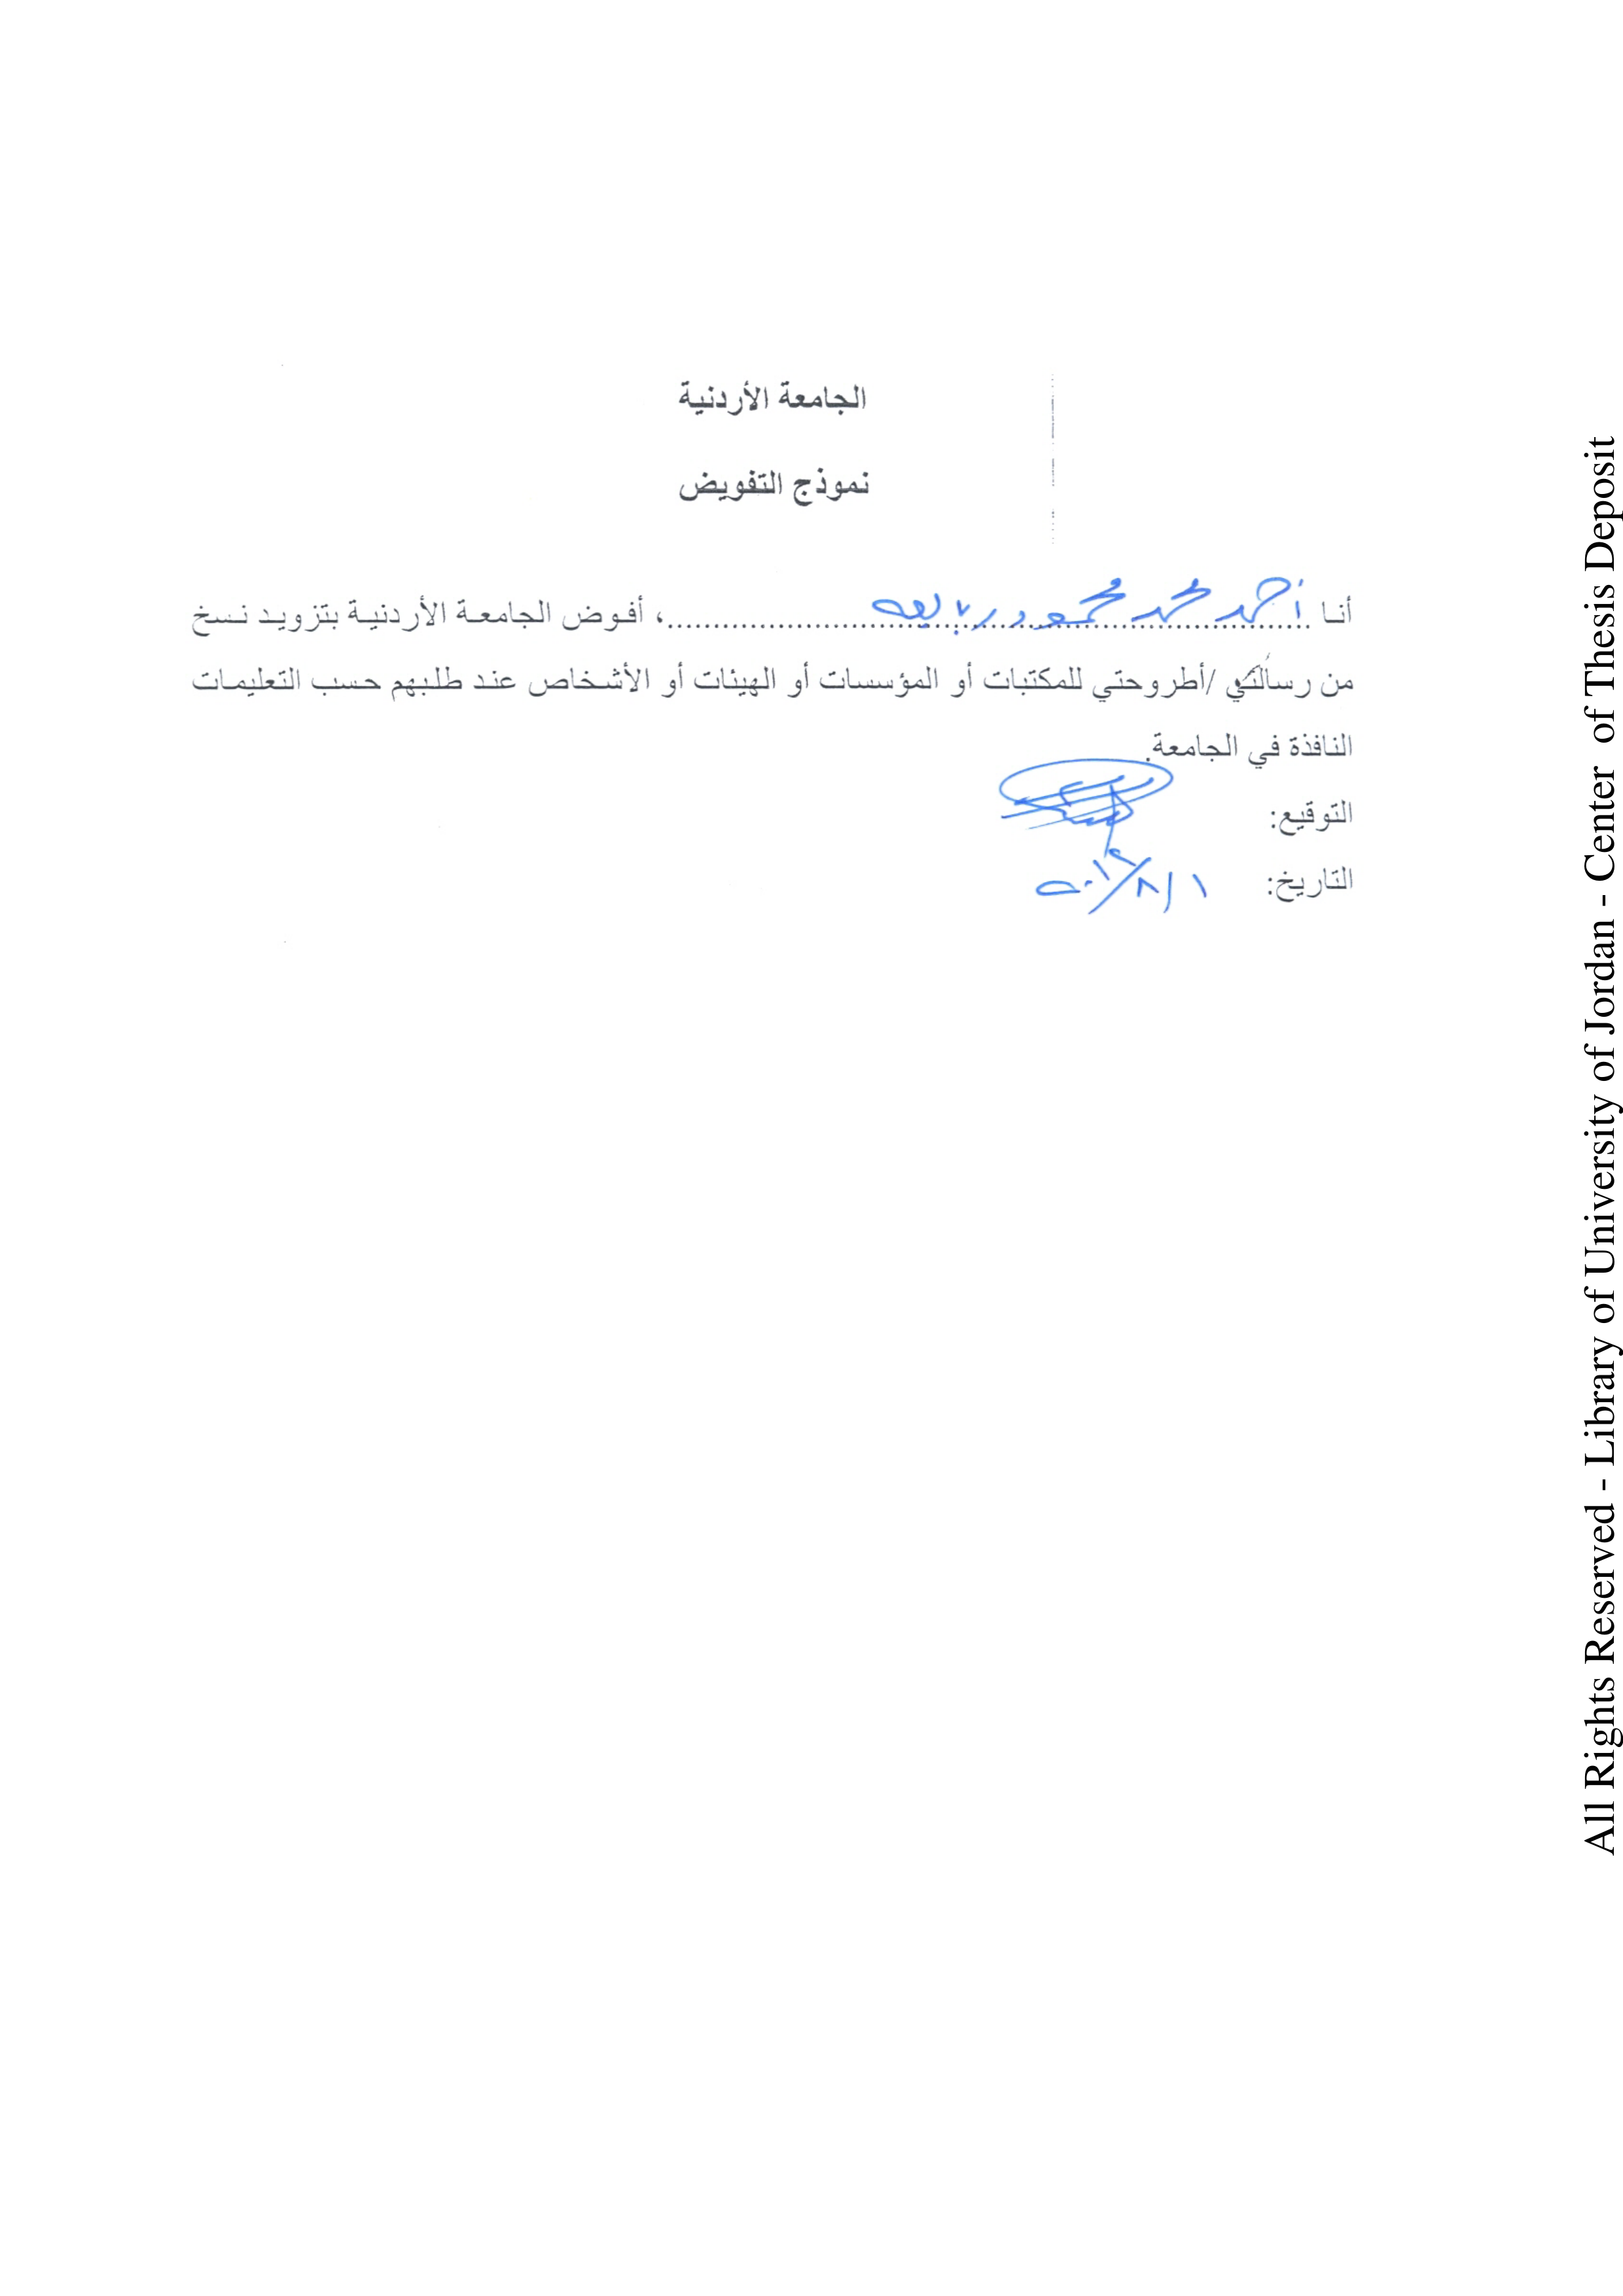 الجامعة الأردنية
نموذج التفويض
أنا أحمد محمد محمود ربايعه، أفوض الجامعة الأردنية بتزويد نسخ
من رسالتي /أطروحتي للمكتبات أو المؤسسات أو الهيئات أو الأشخاص عند طلبهم حسب التعليمات
النافذة في الجامعة.
التوقيع:
التاريخ: ١/٨/٢٠١٢
All Rights Reserved - Library of University of Jordan - Center of Thesis Deposit